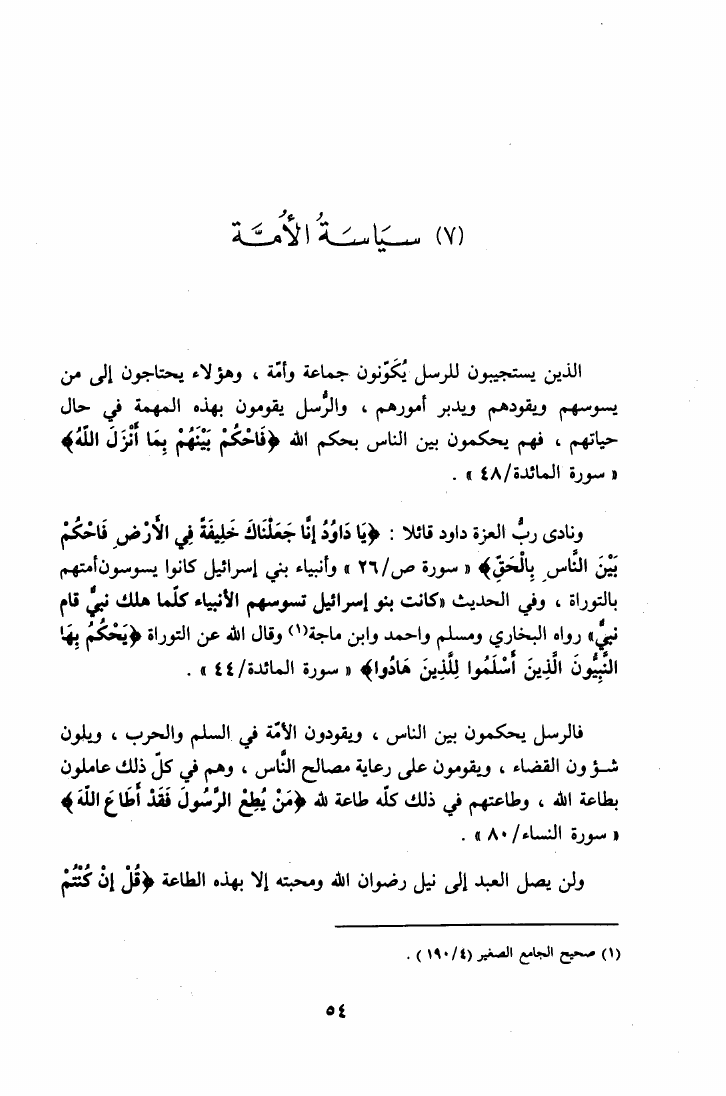 (٧) سيَاسَةُ الأُمَّة
الذين يستجيبون للرسل يُكَوّنون جماعة وأمّة ، وهؤلاء يحتاجون إلى من
يسوسهم ويقودهم ويدبر أمورهم ، والرُّسل يقومون بهذه المهمة في حال
حياتهم ، فهم يحكمون بين الناس بحكم الله ﴿فَاحْكُمْ بَيْنَهُمْ بِمَا أَنْزَلَ اللَّهُ﴾
« سورة المائدة/٤٨ » .
ونادى ربُّ العزة داود قائلا : ﴿يَا دَاوُدُ إنَّا جَعَلْنَاكَ خَلِيفَةً فِي الأَرْضِ فَاحْكُمْ
بَيْنَ النَّاسِ بِالْحَقِّ﴾ « سورة ص/٢٦ » وأنبياء بني إسرائيل كانوا يسوسون أمتهم
بالتوراة ، وفي الحديث «كانت بنو إسرائيل تسوسهم الأنبياء كلّما هلك نبيٌّ قام
نبيٌّ» رواه البخاري ومسلم واحمد وابن ماجة(١) وقال الله عن التوراة ﴿يَحْكُمُ بِهَا
النَّبِيُّونَ الَّذِينَ أَسْلَمُوا لِلَّذِينَ هَادُوا﴾ « سورة المائدة/٤٤ » .
فالرسل يحكمون بين الناس ، ويقودون الأمّة في السلم والحرب ، ويلون
شؤون القضاء ، ويقومون على رعاية مصالح النَّاس ، وهم في كلّ ذلك عاملون
بطاعة الله ، وطاعتهم في ذلك كلّه طاعة لله ﴿مَنْ يُطِعْ الرَّسُولَ فَقَدْ أَطَاعَ اللَّهَ﴾
« سورة النساء/٨٠ » .
ولن يصل العبد إلى نيل رضوان الله ومحبته إلا بهذه الطاعة ﴿قُلْ إنْ كُنْتُمْ
(١) صحيح الجامع الصغير (٤/١٩٠) .
٥٤